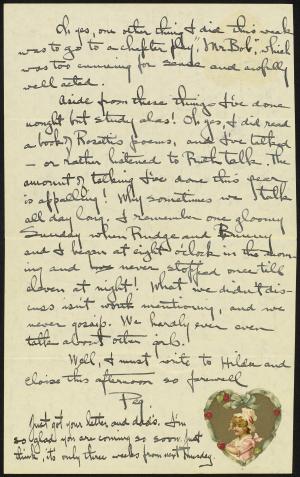 Oh yes, one other thing I did this week
was to go to a chapter play, "Mr. Bob", which
was too cunning for and awfully
well acted.
Aside from these things I've done
nought but study alas! Oh yes, I did read
a book of Rosetti's poems, and I've talked
– or rather listened to Ruth talk. The
amount of talking I've done this year
is appalling! Why sometimes we talk
all day long. I remember one gloomy
Sunday when Rudge and
and I began at eight o'clock in the morn-
ing and never stopped once till
eleven at night! What we didn't dis-
cuss isn't worth mentioning, and we
never gossip. We hardly ever even
talk about other girls.
Well, I must write to Hilda and
Eloise this afternoon so farewell
Peg
Just got your letter and dad's. I'm
so glad you are coming so soon. Just
think, it's only three weeks from next Thursday.